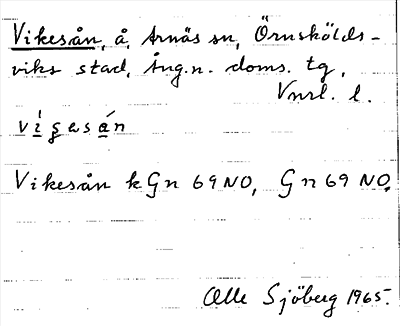 Vikesån, å, Arnäs sn, Örnskölds-
viks stad, Ång.n. doms. tg,
Vnrl. l.
Vikesån k Gn 69 NO, Gn 69 NO,
Olle Sjöberg 1965.